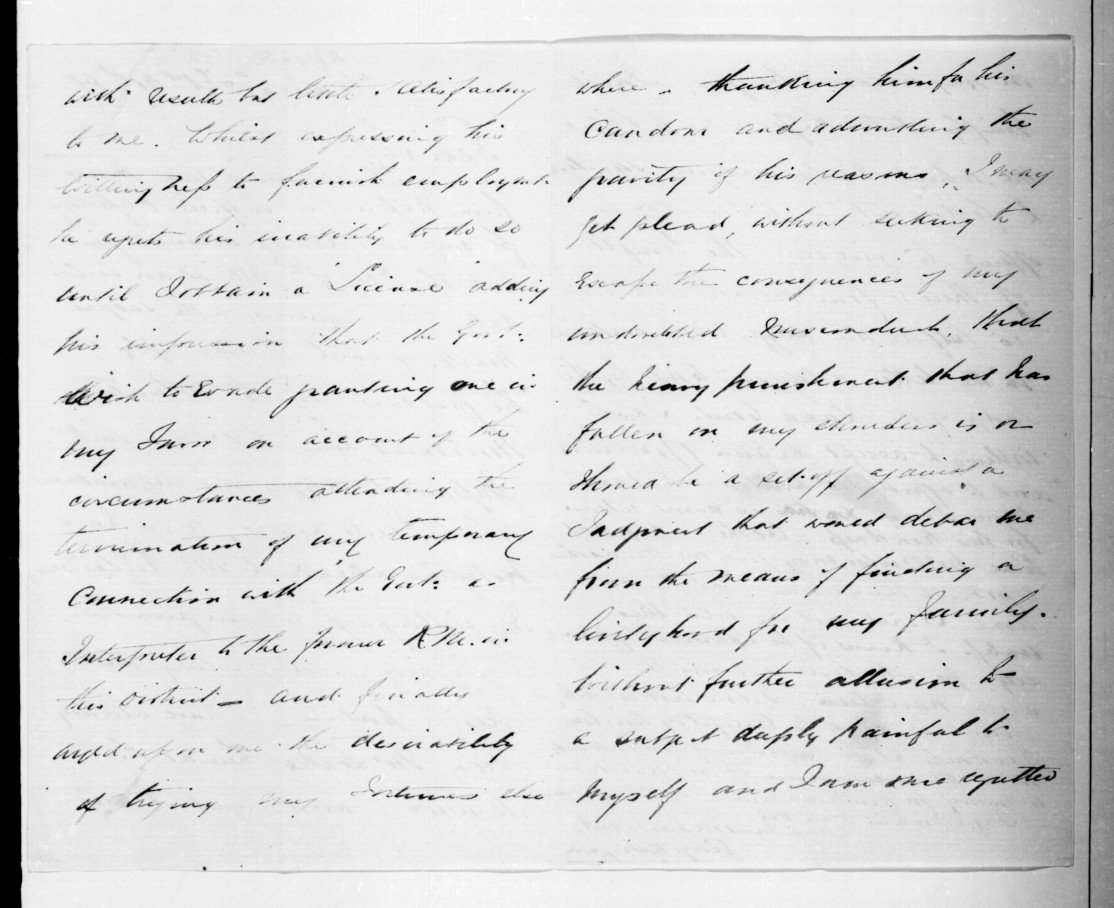 with results but little satisfactory
to me. Whilst expressing his
willingness to furnish employment
he regrets his inability to do so
until I obtain a "License" adding
his impression that the Govt:
wish to Evade granting one in
my Turn on account of the
circumstances attending the
termination of my temporary
Connection with the Govt: as
Interpreter to the former R.M. in
this District — and finally
urged upon me the desirability
of trying my fortunes else
where. thanking him for his
Candour and admitting the
gravity of his reasons, I may
yet plead, without seeking to
Escape the consequences of my
undoubted misconduct, that
the heavy punishment that has
fallen on my shoulders is or
should be a set-off against a
Judgment that would debar me
from the means of finding a
livelyhood for my family.
Without further allusion to
a subject deeply painful to
myself and I am sure regretted